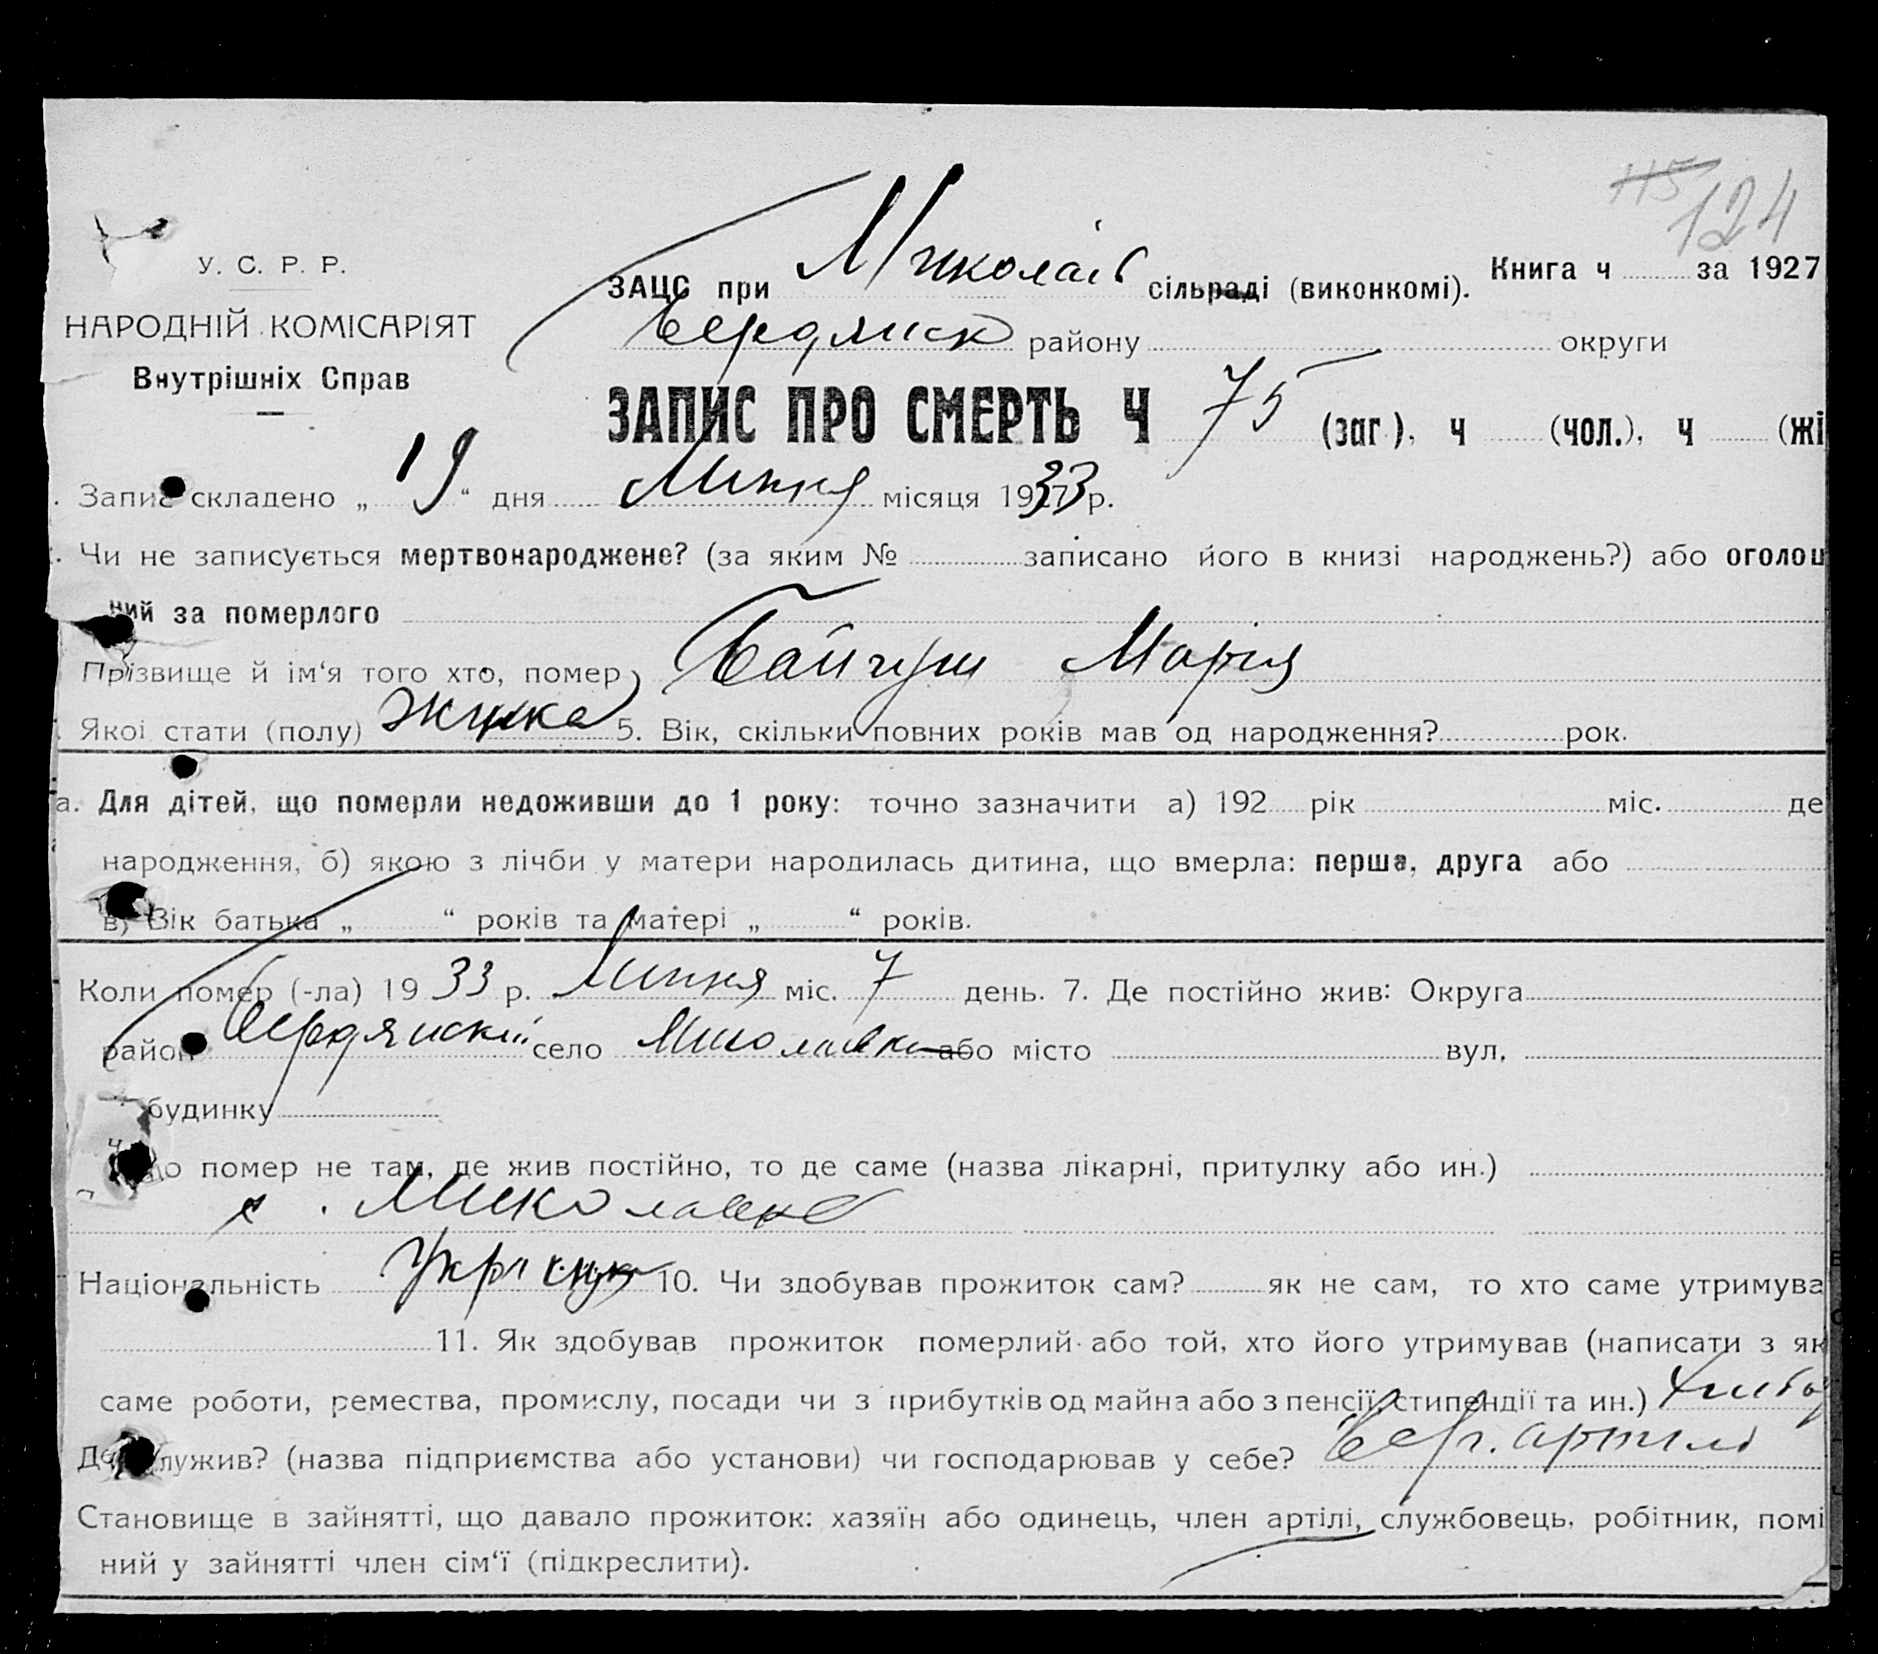 115 124
У. С. Р. Р.
НАРОДНІЙ КОМІСАРІЯТ
Внутрішніх Справ
ЗАЦС при Миколаїв сільраді (виконкомі). Книга ч за 1927
Бердянск району округи
ЗАПИС ПРО СМЕРТЬ Ч 75 (заг.), ч (чол.), ч (жі
Запис складено „19“ дня Липня місяця 1933 р.
Чи не записується мертвонароджене? (за яким № записано його в книзі народжень?) або оголош
ний за померлого
Прізвище й ім‘я того хто, помер Байгуш Марія
Якої стати (полу) жинка 5. Вік, скільки повних років мав од народження? рок.
а. Для дітей, що померли недоживши до 1 року: точно зазначити а) 192 рік міс. де
народження, б) якою з лічби у матери народилась дитина, що вмерла: перша, друга або
в) Вік батька „ “ років та матері „ “ років.
Коли помер (-ла) 1933 р. Липня міс. 7 день. 7. Де постійно жив: Округа
район Бердянский село Миколаевка або місто вул.
будинку
що помер не там, де жив постійно, то де саме (назва лікарні, притулку або ин.)
с. Миколаевка
Національність 10. Чи здобував прожиток сам? як не сам, то хто саме утримува
11. Як здобував прожиток померлий або той, хто його утримував (написати з як
саме роботи, ремества, промислу, посади чи з прибутків од майна або з пенсії, стипендії та ин.)
Де служив? (назва підприємства або установи) чи господарював у себе? артилі
Становище в зайнятті, що давало прожиток: хазяїн або одинець, член артілі, службовець, робітник, помі
ний у зайнятті член сім‘ї (підкреслити).